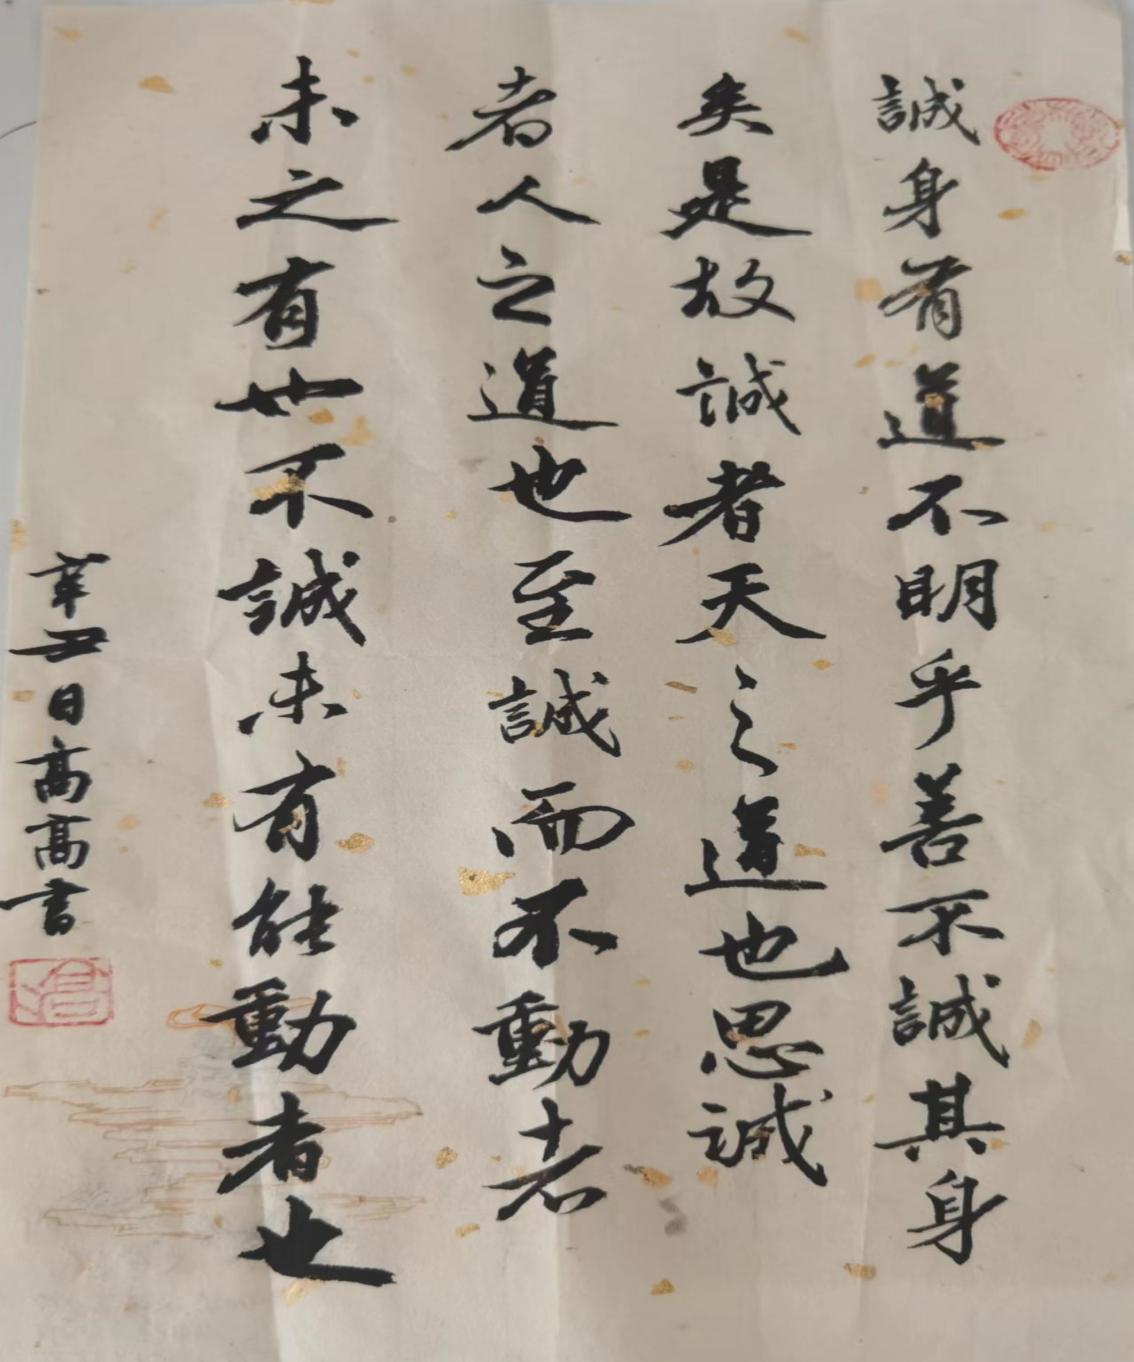 誠身有道不明乎善不誠其身
矣是故誠者天之道也思誠
者人之道也至誠而不動者
未之有也不誠未有能動者也
辛丑日高高書